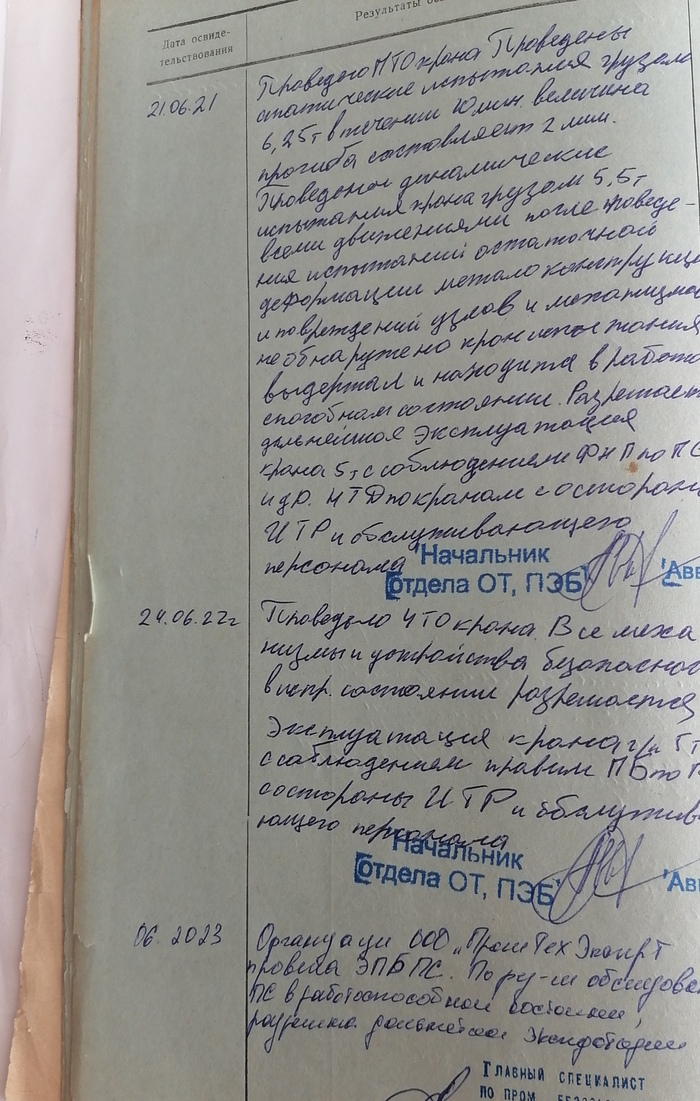 Результаты
Дата освиде-
тельствования
21.06.21
Проведено ПТО крана Проведены
статические испытания грузом
6,25т в течении 10 мин. величина
прогиба составляет 2 мм.
Проведены динамические
испытания крана грузом 5,5т
всеми движениями после проведе-
ния испытаний остаточной
деформации метало конструкции
и повреждений узлов и механизмов
не обнаружено кран испытания
выдержал и находится в работо
способном состоянии. Разрешает
дальнейшая Эксплуатация
крана 5т с соблюдением ФНП по ПС
и др. НТД по кранам с осторан
ИТР и обслуживающего
персонала
Начальник
отдела ОТ, ПЭБ
24.06.22г
Проведено ЧТО крана. Все меха
низмы и устройства безопаснос
в испр. состоянии разрешается
Эксплуатация крана г/п 5т
с соблюдением правил ПБ по П
состораны ИТР и обслужив
ающего персонала
Начальник
отдела ОТ, ПЭБ
06. 2023
Организаци ООО „ПромТехЭксперт
провела ЭПБ ПС. По рез-м обследова
ПС в работоспособном состоянии,
разрешена дальнейшая Эксплуатация
Главный специалист
по пром.